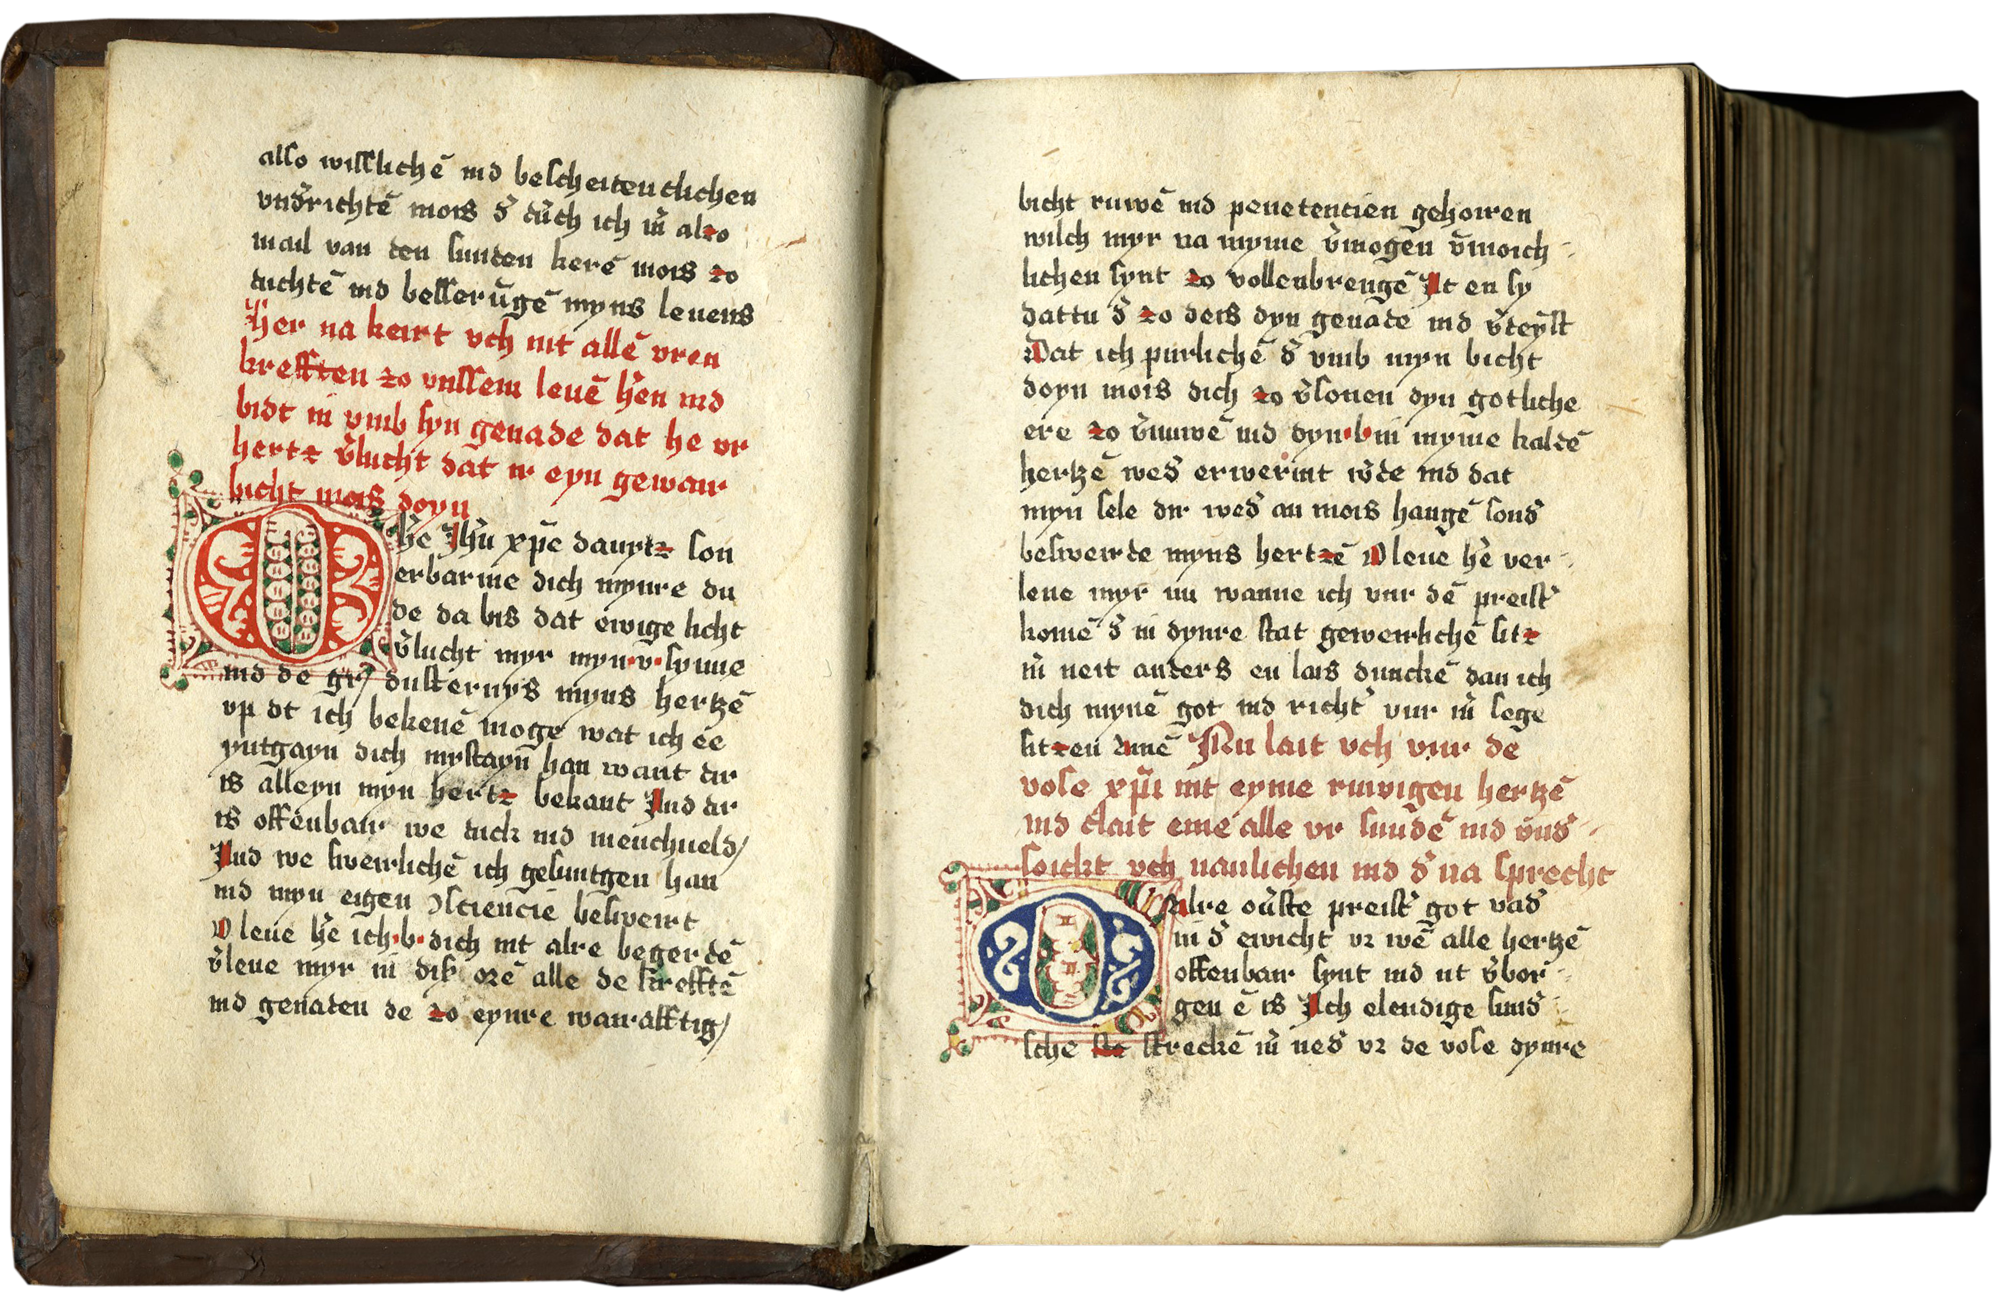 also wisslichē ind bescheidentlichen
vnd̄richtē mois d̄ dūch ich in̄ alzo
mail van den sunden kerē mois zo
duchtē ind besserūgē myns leuens
Her na keirt vch mit allē vren
krefften zo vnssem leuē h̄en ind
bidt in vmb syn genade dat he vr
hertz v̄lucht dat ir eyn gewair
bicht mois doyn
O h̄e Jhū xp̄e dauytz son
erbarme dich mynre du
de da bis dat ewige licht
v̄lucht myr myn·v·synne
ind de gr dusternys myns hertzē
vp dt ich bekenē moge wat ich ee
yntgayn dich mystayn̄ han want dir
is alleyn myn hertz bekant Ind dir
is offenbair we dick ind menchueld/
Ind we sweirlichē ich gesuntgen han
ind myn eigen ɔsciencie besweirt
O leue h̄e ich·b·dich mit alre begerdē
v̄leue myr in dis orē alle de krefftē
ind genaden de zo eynre wairafftig/
bicht ruwē ind penetencien gehoiren
wilch myr na myme v̄mogen v̄moich-
lichen synt zo vollenbrengē It en sy
dattu d̄ zo deis dyn genade ind v̄deylt
Dat ich purlichē d̄ vmb myn bicht
doyn mois dich zo v̄sonen dyn gotliche
ere zo v̄nuwē ind dyn·b·in myme kaldē
hertzē wed̄ erwerint w̄de ind dat
myn sele dir wed̄ an mois hangē sond̄
besweirde myns hertzē O leue h̄e ver-
lene myr nu wanne ich vur dē preist̄
komē d̄ in dynre stat geweirlichē sitz
in̄ neit anders en lais dunckē dan ich
dich mynē got ind richt̄ vur in̄ sege
sitzen Amē Nu lait vch vur de
vose xp̄i mit eyme ruwigen hertzē
ind clait eme alle vr sundē ind v̄us
soickt vch nanlichen ind d̄ na sprecht
O Alre ou̅ste preist̄ got vad̄
in d̄ ewicht vz wē alle hertzē
offenbair synt ind nt v̄bor-
gen ē is Ich elendige sund̄
sche streckē in̄ ned̄ vz de vose dynre